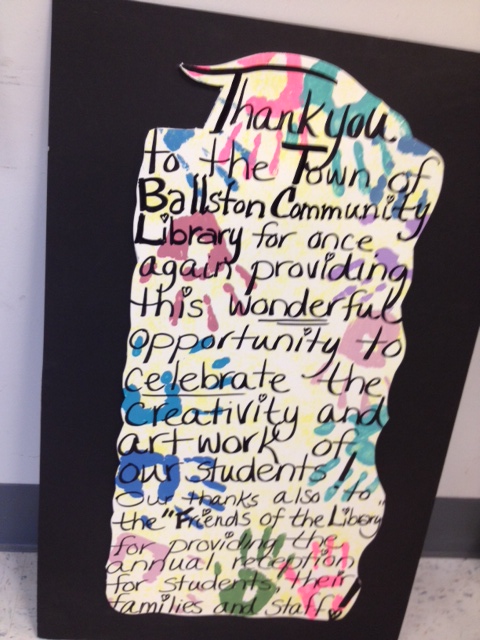 Thank you
to the Town of
Ballston Community
Library for once
again providing
this wonderful
opportunity to
celebrate the
creativity and
artwork of
our students!
Our thanks also to
the "Friends of the Library"
for providing the
annual reception
for students, their
families and staff!